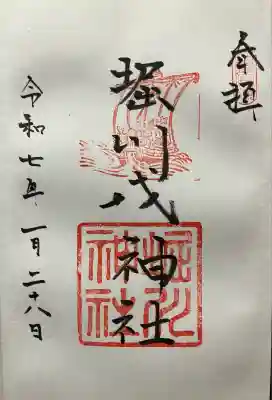 奉拝
堀川戎神社
令和七年一月二十八日
堀川神社